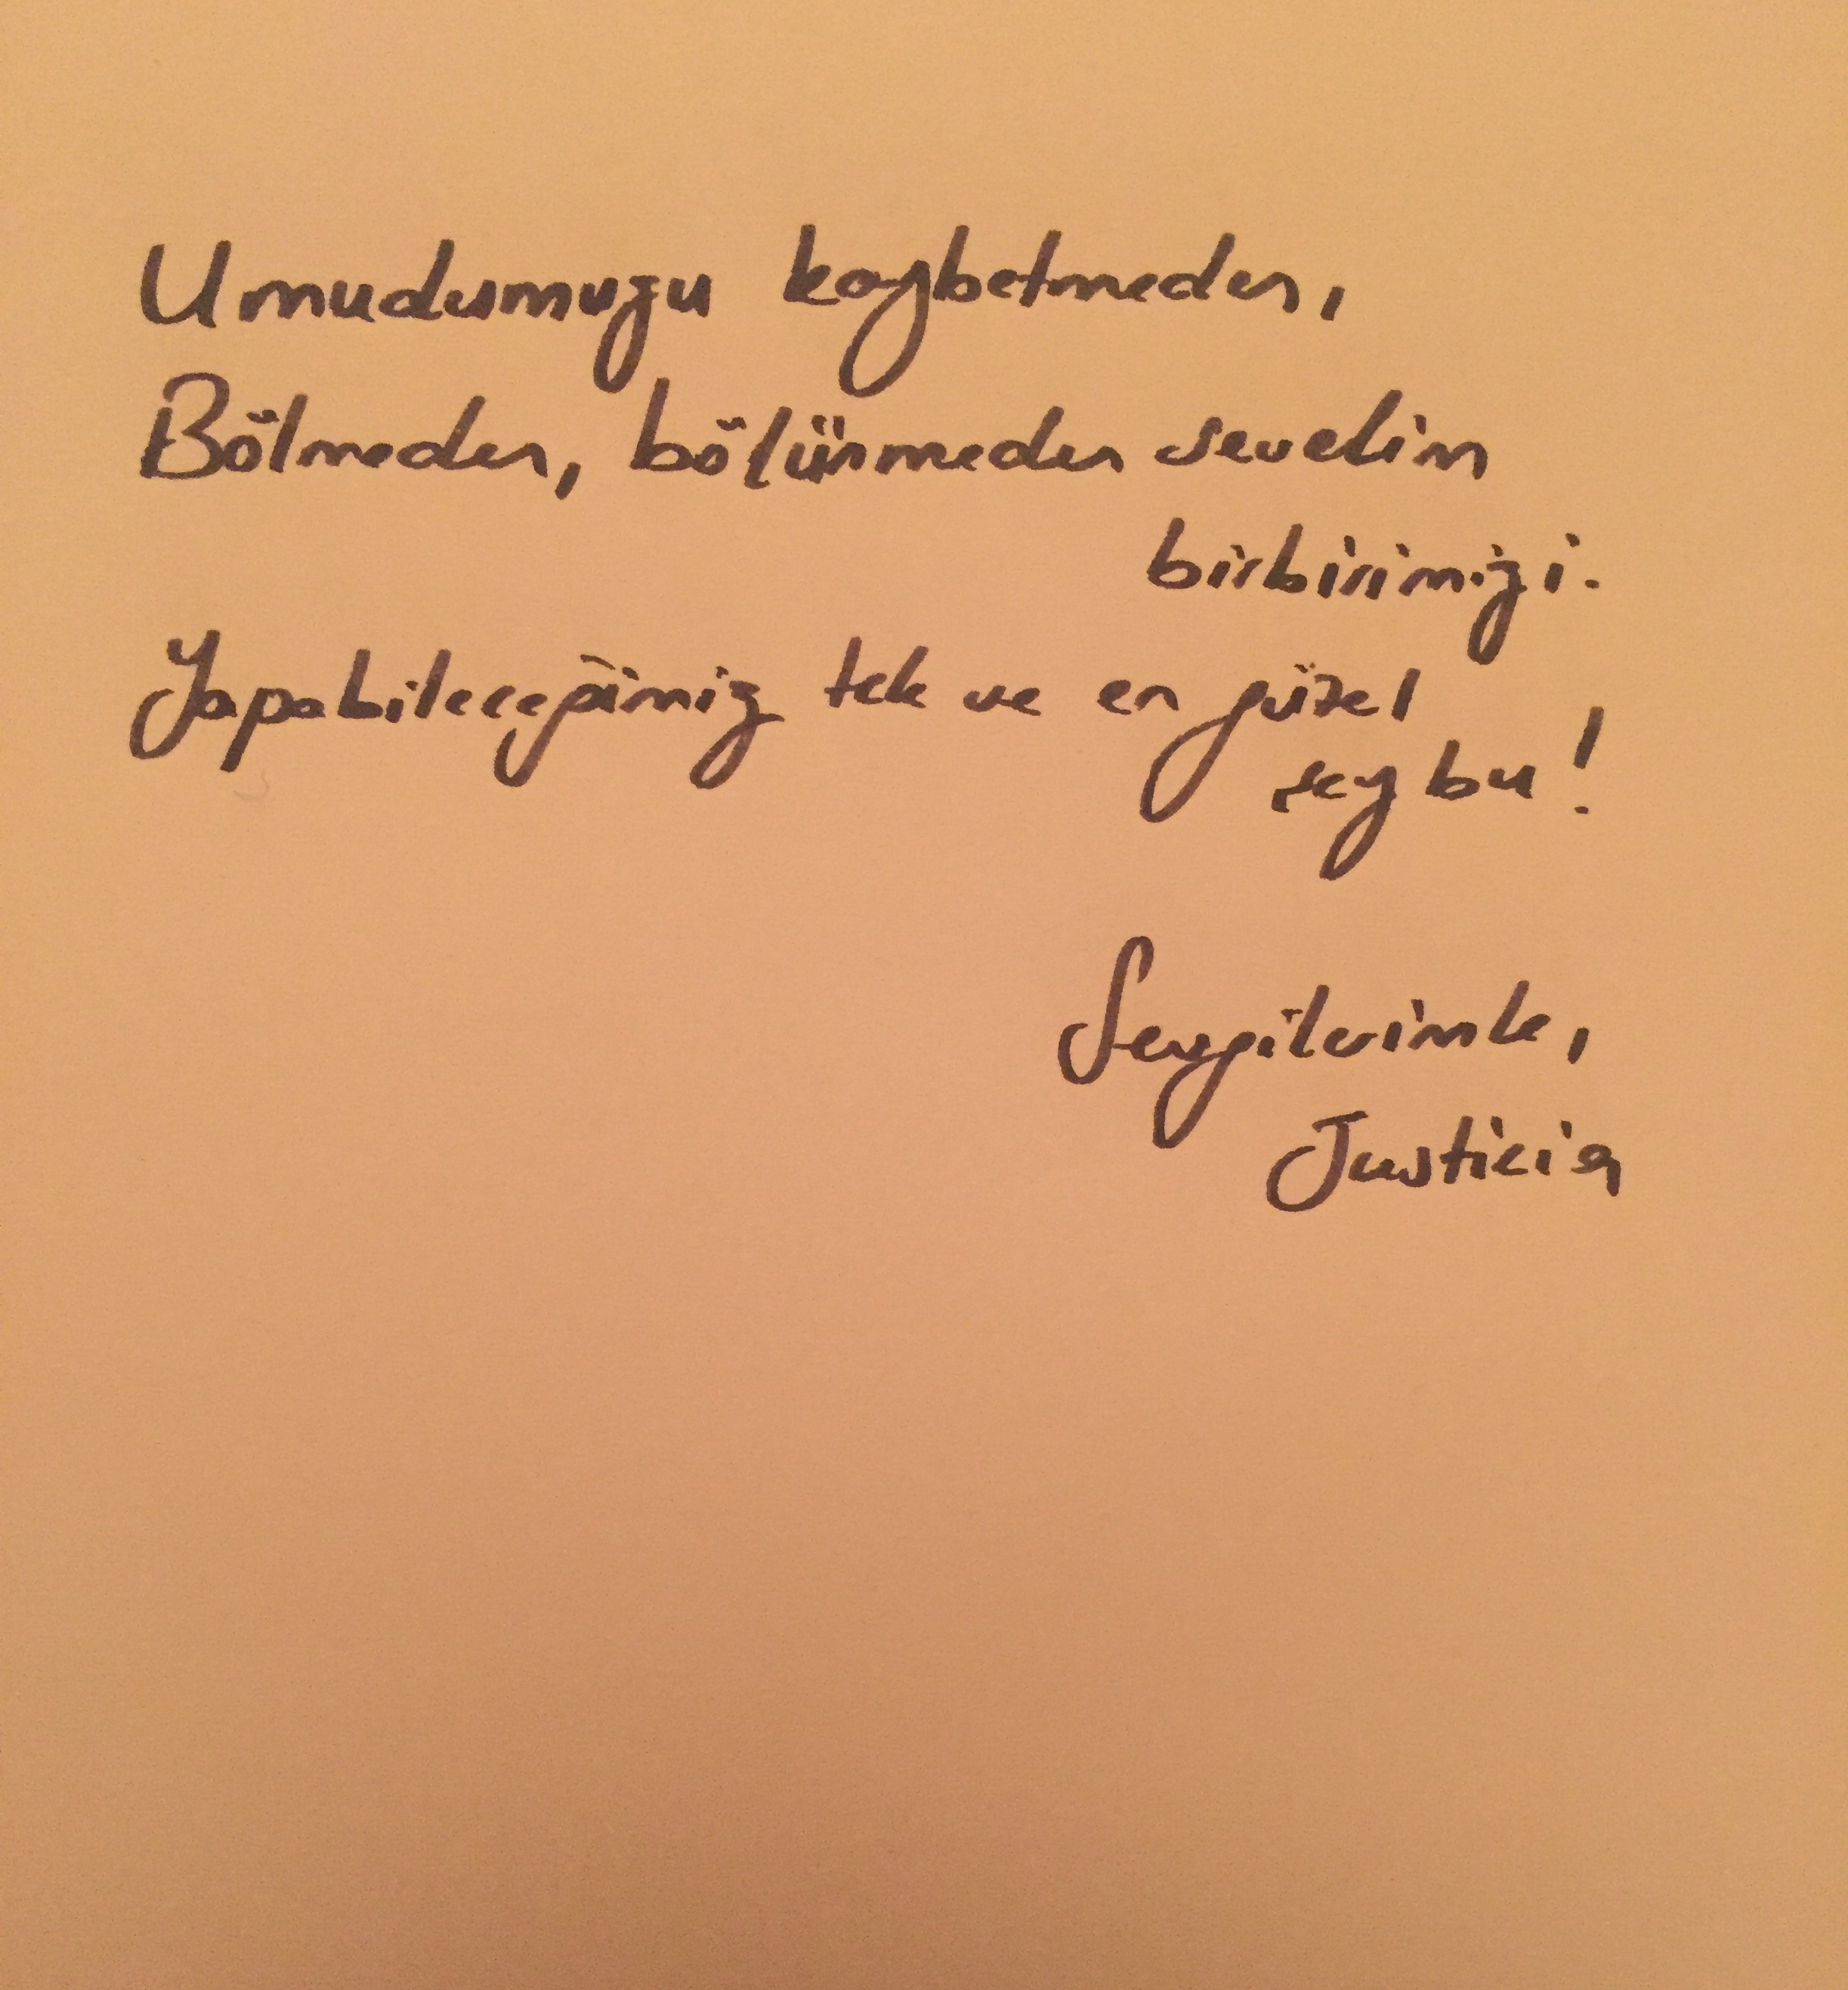 Umudumuzu kaybetmeden,
Bölmeden, bölünmeden sevelim
birbirimizi.
Yapabileceğimiz tek ve en güzel
şey bu!
Sevgilerimle,
Justicia